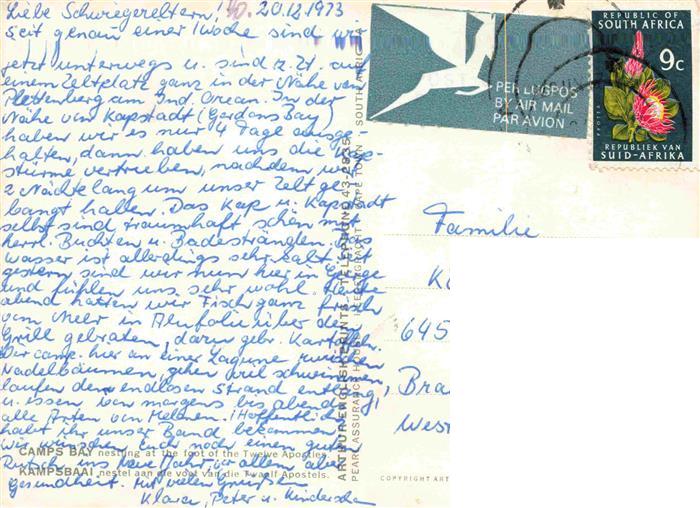 Liebe Schwiegereltern! 20.12.1973
Seit genau einer Woche sind wir
jetzt unterwegs u. sind z. Zt. auf
einem Zeltplatz ganz in der Nähe von
Plettenberg am Ind. Ozean. In der
Nähe von Kapstadt (Gordons Bay)
haben wir es nur 4 Tage ausge-
halten, dann haben uns die Kap-
stürme vertrieben, nachdem wir
2 Nächte lang um unser Zelt ge-
bangt haben. Das Kap u. Kapstadt
selbst sind traumhaft schön mit
herrl. Buchten u. Badestränden. Das
Wasser ist allerdings sehr kalt. Seit
gestern sind wir nun hier in
und fühlen uns sehr wohl. Heute
abend hatten wir Fisch ganz frisch
vom Meer in Alufolie über dem
Grill gebraten, dazu gebr. Kartoffeln.
Wir camp. hier an einer Lagune zwischen
Nadelbäumen, gehen viel schwimmen,
laufen den endlosen Strand entlang,
u. essen von morgens bis abends
alle Arten von Melonen. Hoffentlich
habt ihr unser Band bekommen.
Wir wünschen Euch noch einen guten
Rutsch ins Neue Jahr, vor allem aber
Gesundheit. Mit vielen Grüßen
Klara, Peter u.
CAMPS BAY nestling at the foot of the Twelve Apostles.
KAMPSBAAI nestel aan die voet van die Twaalf Apostels.
ARTHUR ENGLISH PRINTS TELEPHONE 43-2835
PEARL ASSURANCE HOUSE HEERENGRACHT CAPE TOWN SOUTH AFRICA
COPYRIGHT ART
PER LUGPOS
BY AIR MAIL
PAR AVION
REPUBLIC OF
SOUTH AFRICA
9c
PROTEA
REPUBLIEK VAN
SUID-AFRIKA
Familie
K
645
Bra
West